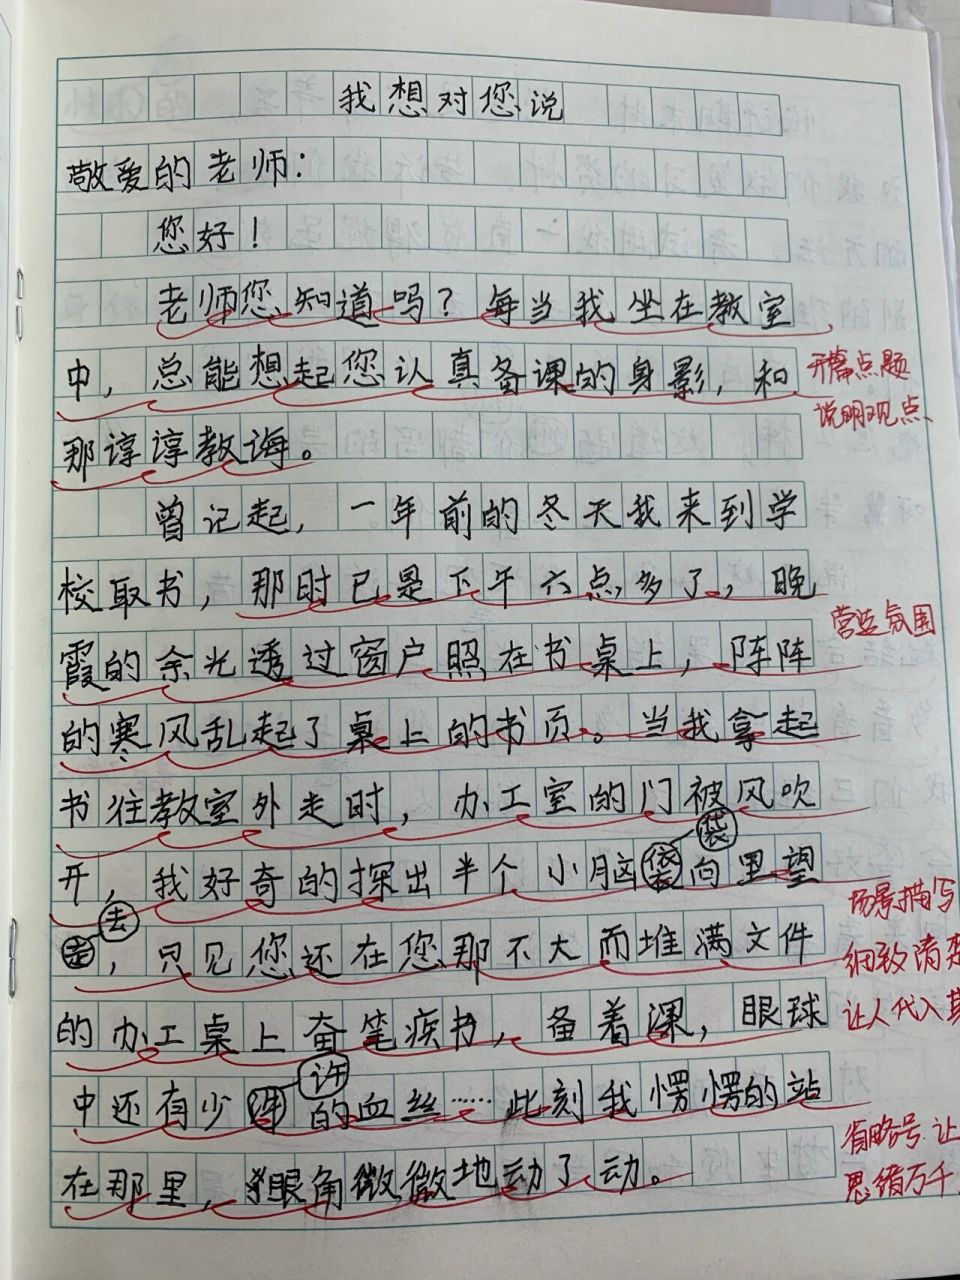 我想对您说
敬爱的老师：
您好！
老师您知道吗？每当我坐在教室
中，总能想起您认真备课的身影，和
开篇点题
说明观点
那谆谆教诲。
曾记起，一年前的冬天我来到学
校取书，那时已是下午六点多了，晚
营造氛围
霞的余光透过窗户照在书桌上，阵阵
的寒风乱起了桌上的书页。当我拿起
书往教室外走时，办工室的门被风吹
袋
开，我好奇的探出半个小脑袋向里望
去
去，只见您还在您那不大而堆满文件
场景描写
细致清楚
让人代入其
的办工桌上奋笔疾书，备着课，眼球
许
中还有少许的血丝……此刻我愣愣的站
省略号让
思绪万千
在那里，眼角微微地动了动。